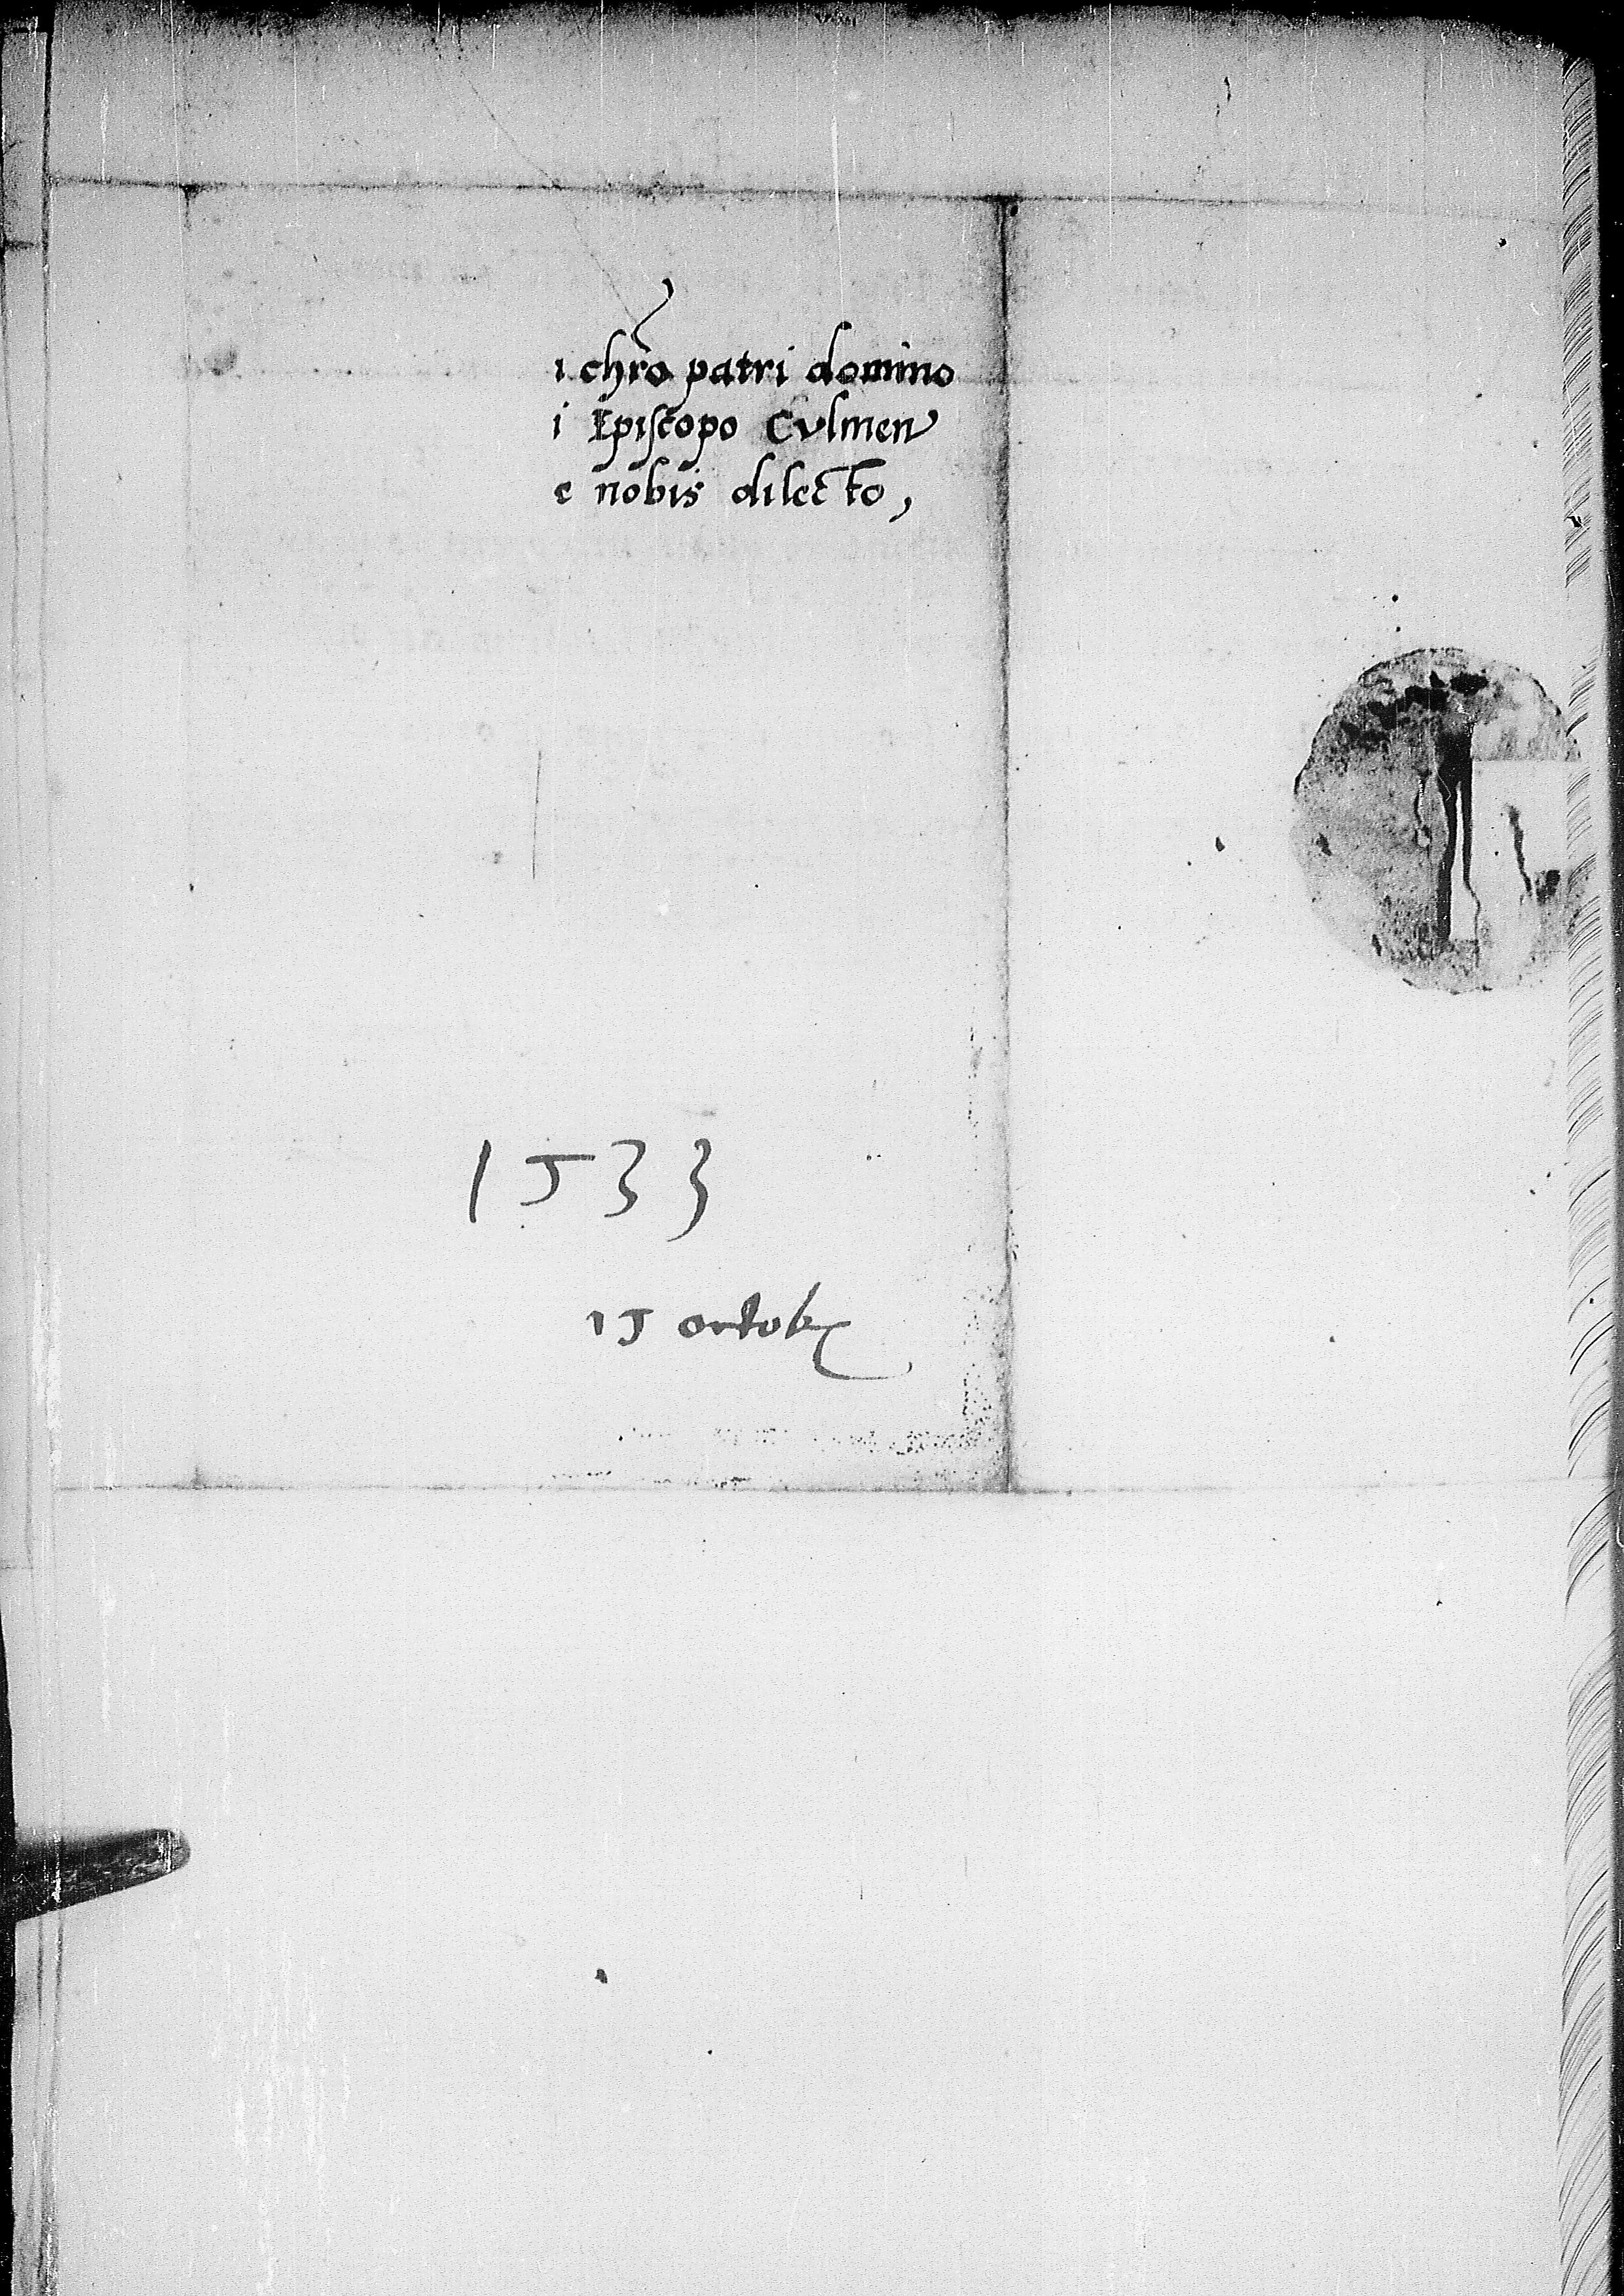 i chro patri domino
i Episcopo Culmen
e nobis dilecto,
1533
15 octob